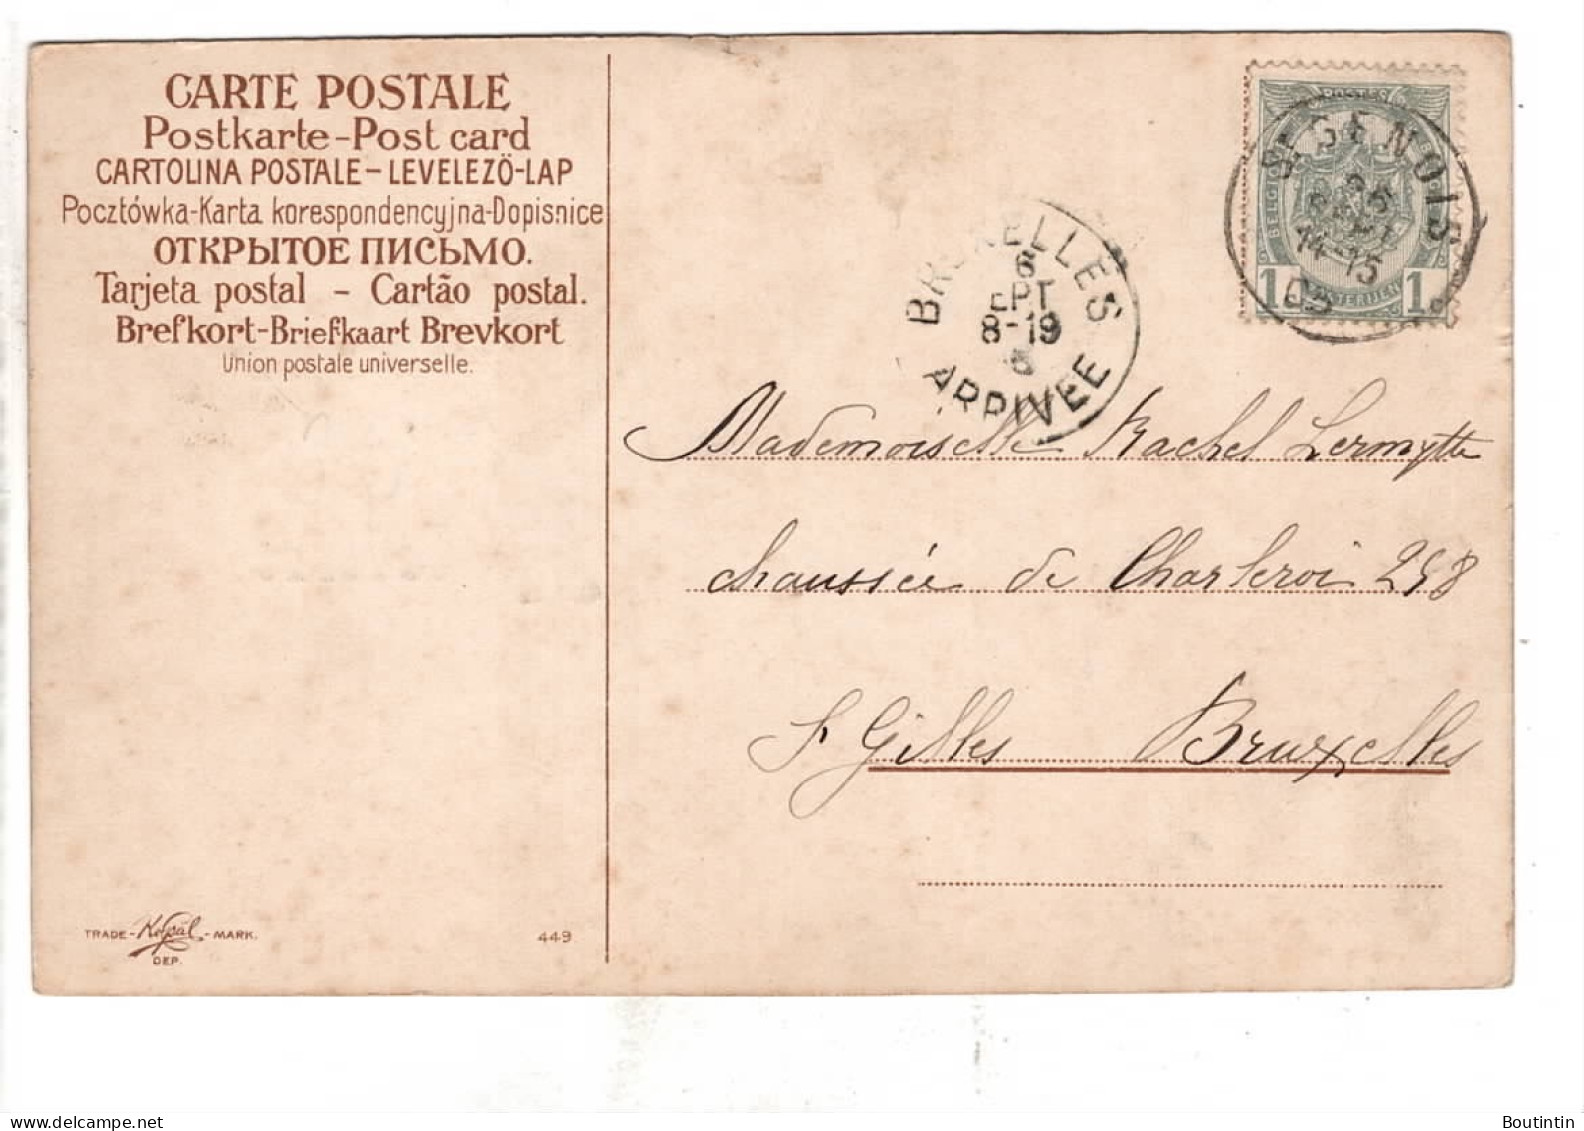 CARTE POSTALE
Postkarte-Post card
CARTOLINA POSTALE-LEVELEZÖ-LAP
Pocztówka-Karta korespondencyjna-Dopisnice
ОТКРЫТОЕ ПИСЬМО.
Tarjeta postal - Cartão postal.
Brefkort-Briefkaart Brevkort
Union postale universelle.
POSTES
BELGIQUE
1 POSTERIJEN 1
14-15
05
BRUXELLES
6
EPT
8-19
5
ARRIVEE
Mademoiselle Rachel Lermytte
chaussée de Charleroi 258
St Gilles Bruxelles
TRADE - - MARK.
DEP.
449
Boutintin